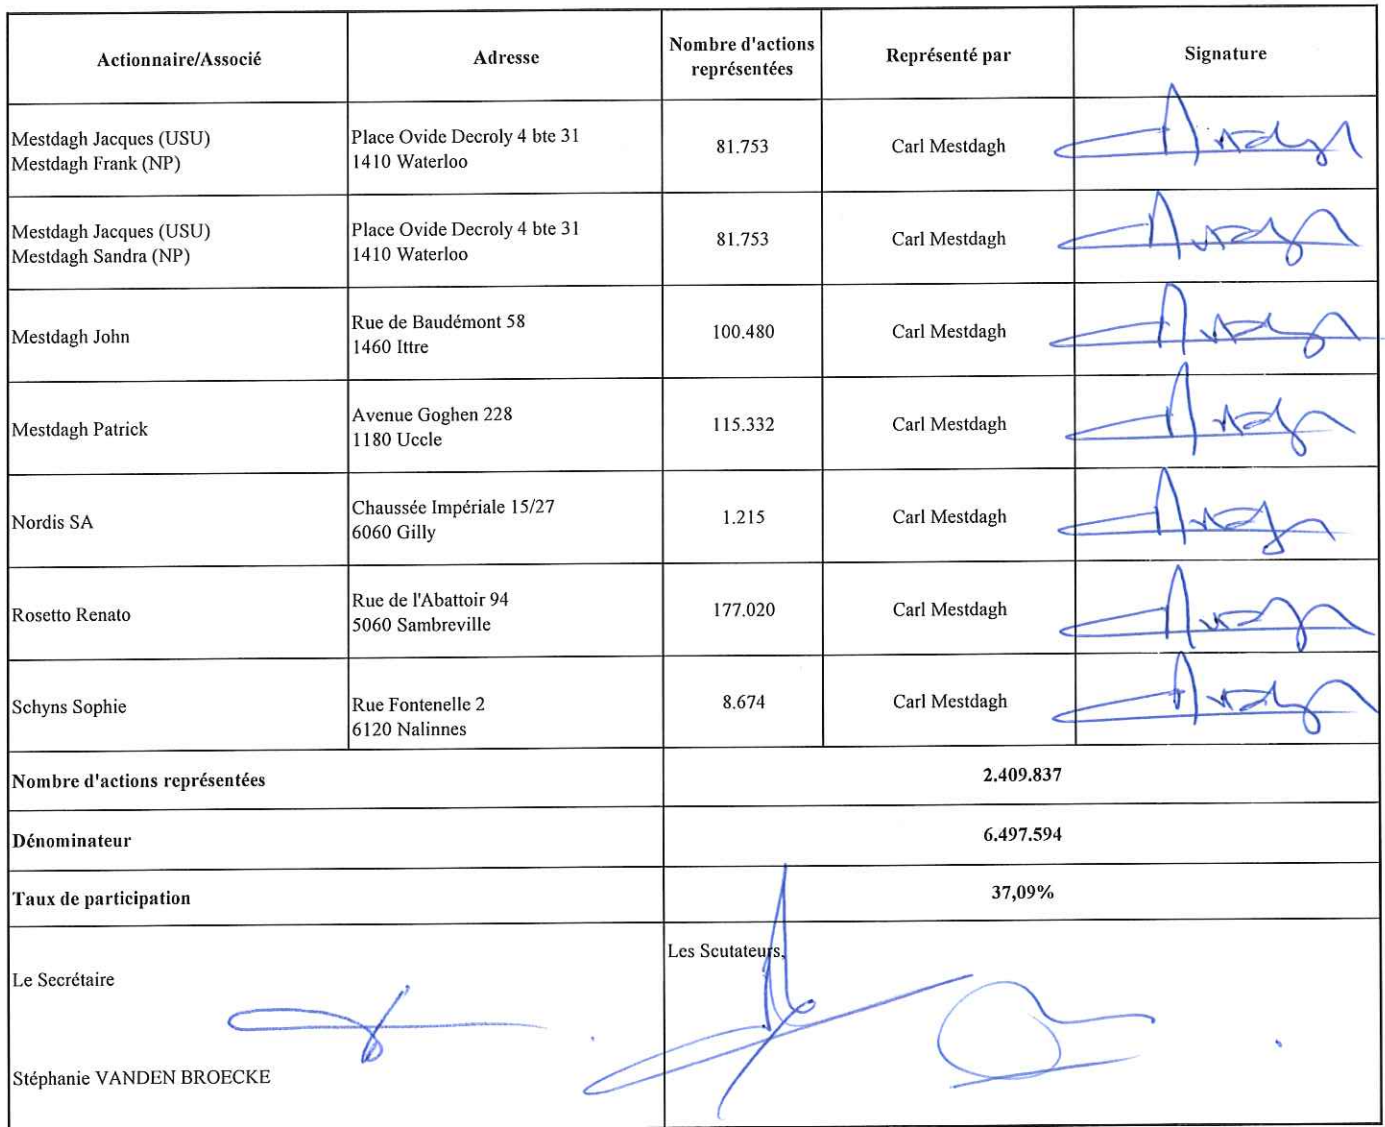 Actionnaire/Associé
Adresse
Nombre d'actions
représentées
Représenté par
Signature
Mestdagh Jacques (USU)
Mestdagh Frank (NP)
Place Ovide Decroly 4 bte 31
1410 Waterloo
81.753
Carl Mestdagh
Mestdagh Jacques (USU)
Mestdagh Sandra (NP)
Place Ovide Decroly 4 bte 31
1410 Waterloo
81.753
Carl Mestdagh
Mestdagh John
Rue de Baudémont 58
1460 Ittre
100.480
Carl Mestdagh
Mestdagh Patrick
Avenue Goghen 228
1180 Uccle
115.332
Carl Mestdagh
Nordis SA
Chaussée Impériale 15/27
6060 Gilly
1.215
Carl Mestdagh
Rosetto Renato
Rue de l'Abattoir 94
5060 Sambreville
177.020
Carl Mestdagh
Schyns Sophie
Rue Fontenelle 2
6120 Nalinnes
8.674
Carl Mestdagh
Nombre d'actions représentées
2.409.837
Dénominateur
6.497.594
Taux de participation
37,09%
Le Secrétaire
Les Scutateurs,
Stéphanie VANDEN BROECKE